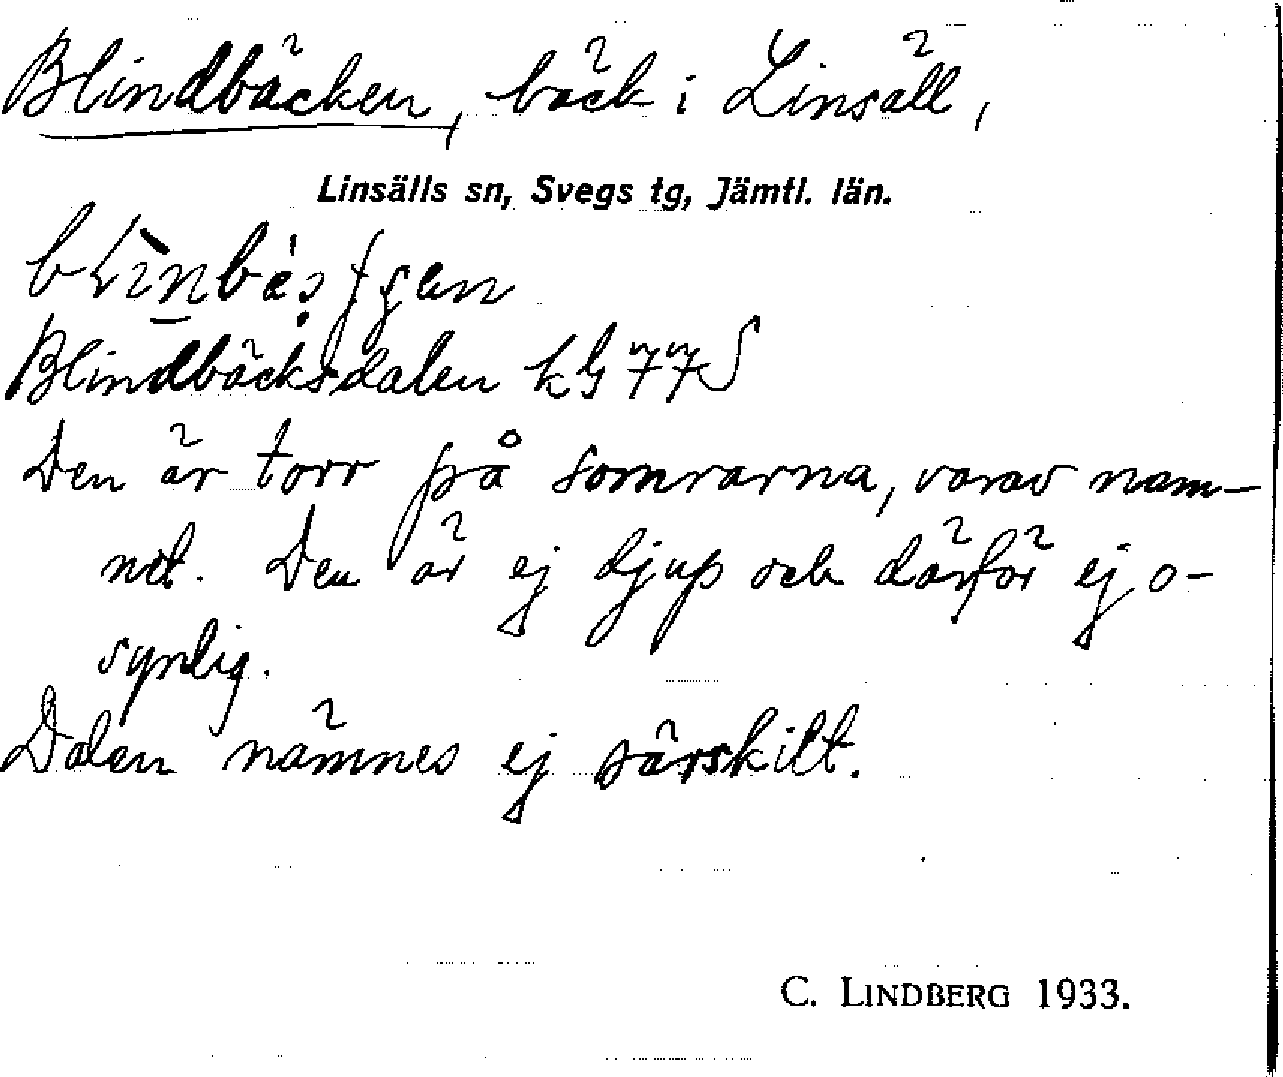 Blindbäcken, bäck i Linsäll,
Linsälls sn, Svegs tg, Jämtl. län.
Blindbäcksdalen kG 77S
Den är torr på somrarna, varav nam-
net. Den är ej djup och därför ej o-
synlig.
Dalen nämnes ej särskilt.
C. LINDBERG 1933.